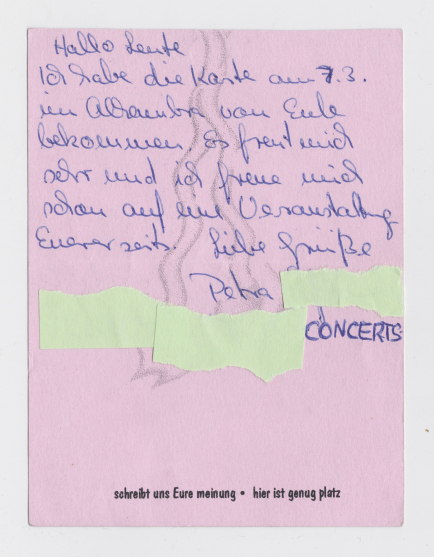 Hallo Leute
Ich habe die Karte am 7.3.
im Alhambra von Eule
bekommen. Es freut mich
sehr und ich freue mich
schon auf eine Veranstaltung
Eurerseits. Liebe Grüße
Petra
CONCERTS
schreibt uns Eure meinung • hier ist genug platz